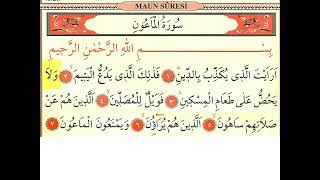 MAUN SÛRESİ
سُورَةُ الْمَاعُونِ
بِسْمِ اللّٰهِ الرَّحْمٰنِ الرَّحِيمِ
اَرَاَيْتَ الَّذِى يُكَذِّبُ بِالدِّينِ ﴿١﴾ فَذٰلِكَ الَّذِى يَدُعُّ الْيَتِيمَ ﴿٢﴾ وَلَا
يَحُضُّ عَلٰى طَعَامِ الْمِسْكِينِ ﴿٣﴾ فَوَيْلٌ لِلْمُصَلِّينَ ﴿٤﴾ اَلَّذِينَ هُمْ عَنْ
صَلَاتِهِمْ سَاهُونَ ﴿٥﴾ اَلَّذِينَ هُمْ يُرَٓاؤُنَ ﴿٦﴾ وَيَمْنَعُونَ الْمَاعُونَ ﴿٧﴾